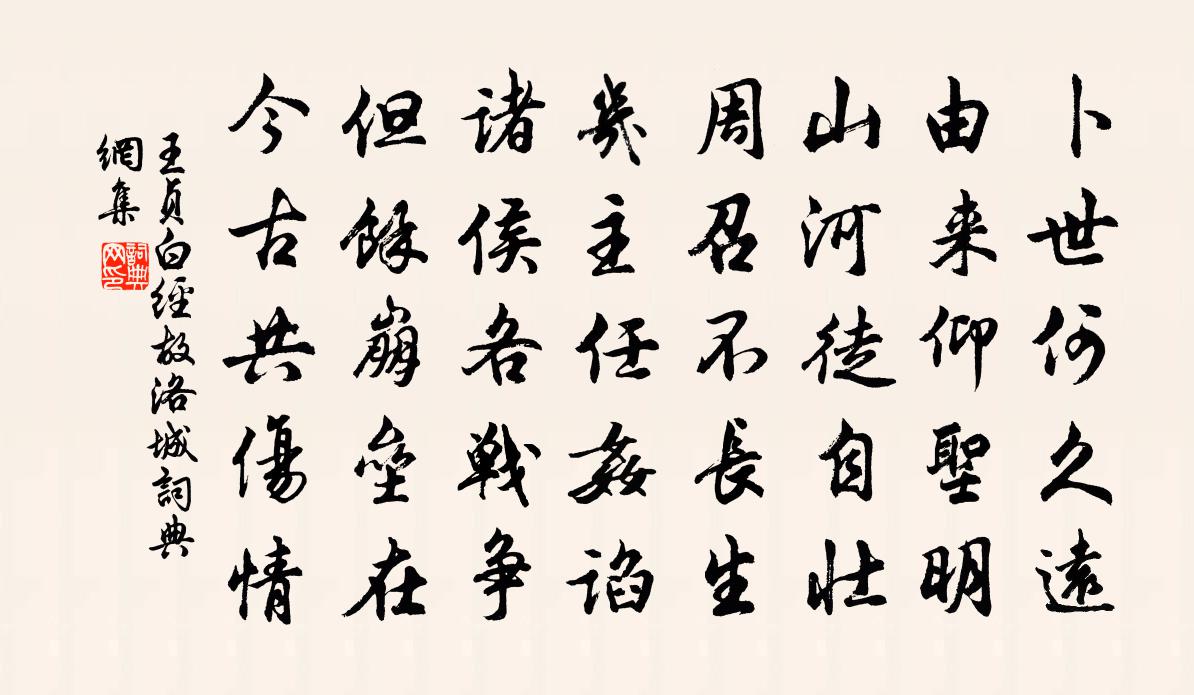 卜世何久遠
由来仰聖明
山河徒自壮
周召不長生
幾主任姦諂
諸侯各戦争
但餘崩壘在
今古共傷情
王貞白經故洛城詞典
網集
詞典
网印